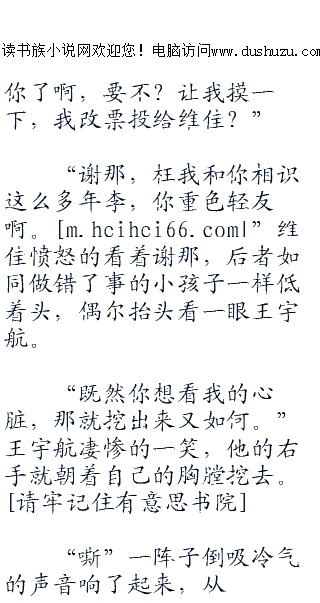 读书族小说网欢迎您！电脑访问www.dushuzu.com
你了啊，要不？让我摸一
下，我改票投给维佳？”
“谢那，枉我和你相识
这么多年李，你重色轻友
啊。[m.hcihci66.com|”维
佳愤怒的看着谢那，后者如
同做错了事的小孩子一样低
着头，偶尔抬头看一眼王宇
航。
“既然你想看我的心
脏，那就挖出来又如何。”
王宇航凄惨的一笑，他的右
手就朝着自己的胸膛挖去。
[请牢记住有意思书院]
“嘶”一阵子倒吸冷气
的声音响了起来，从